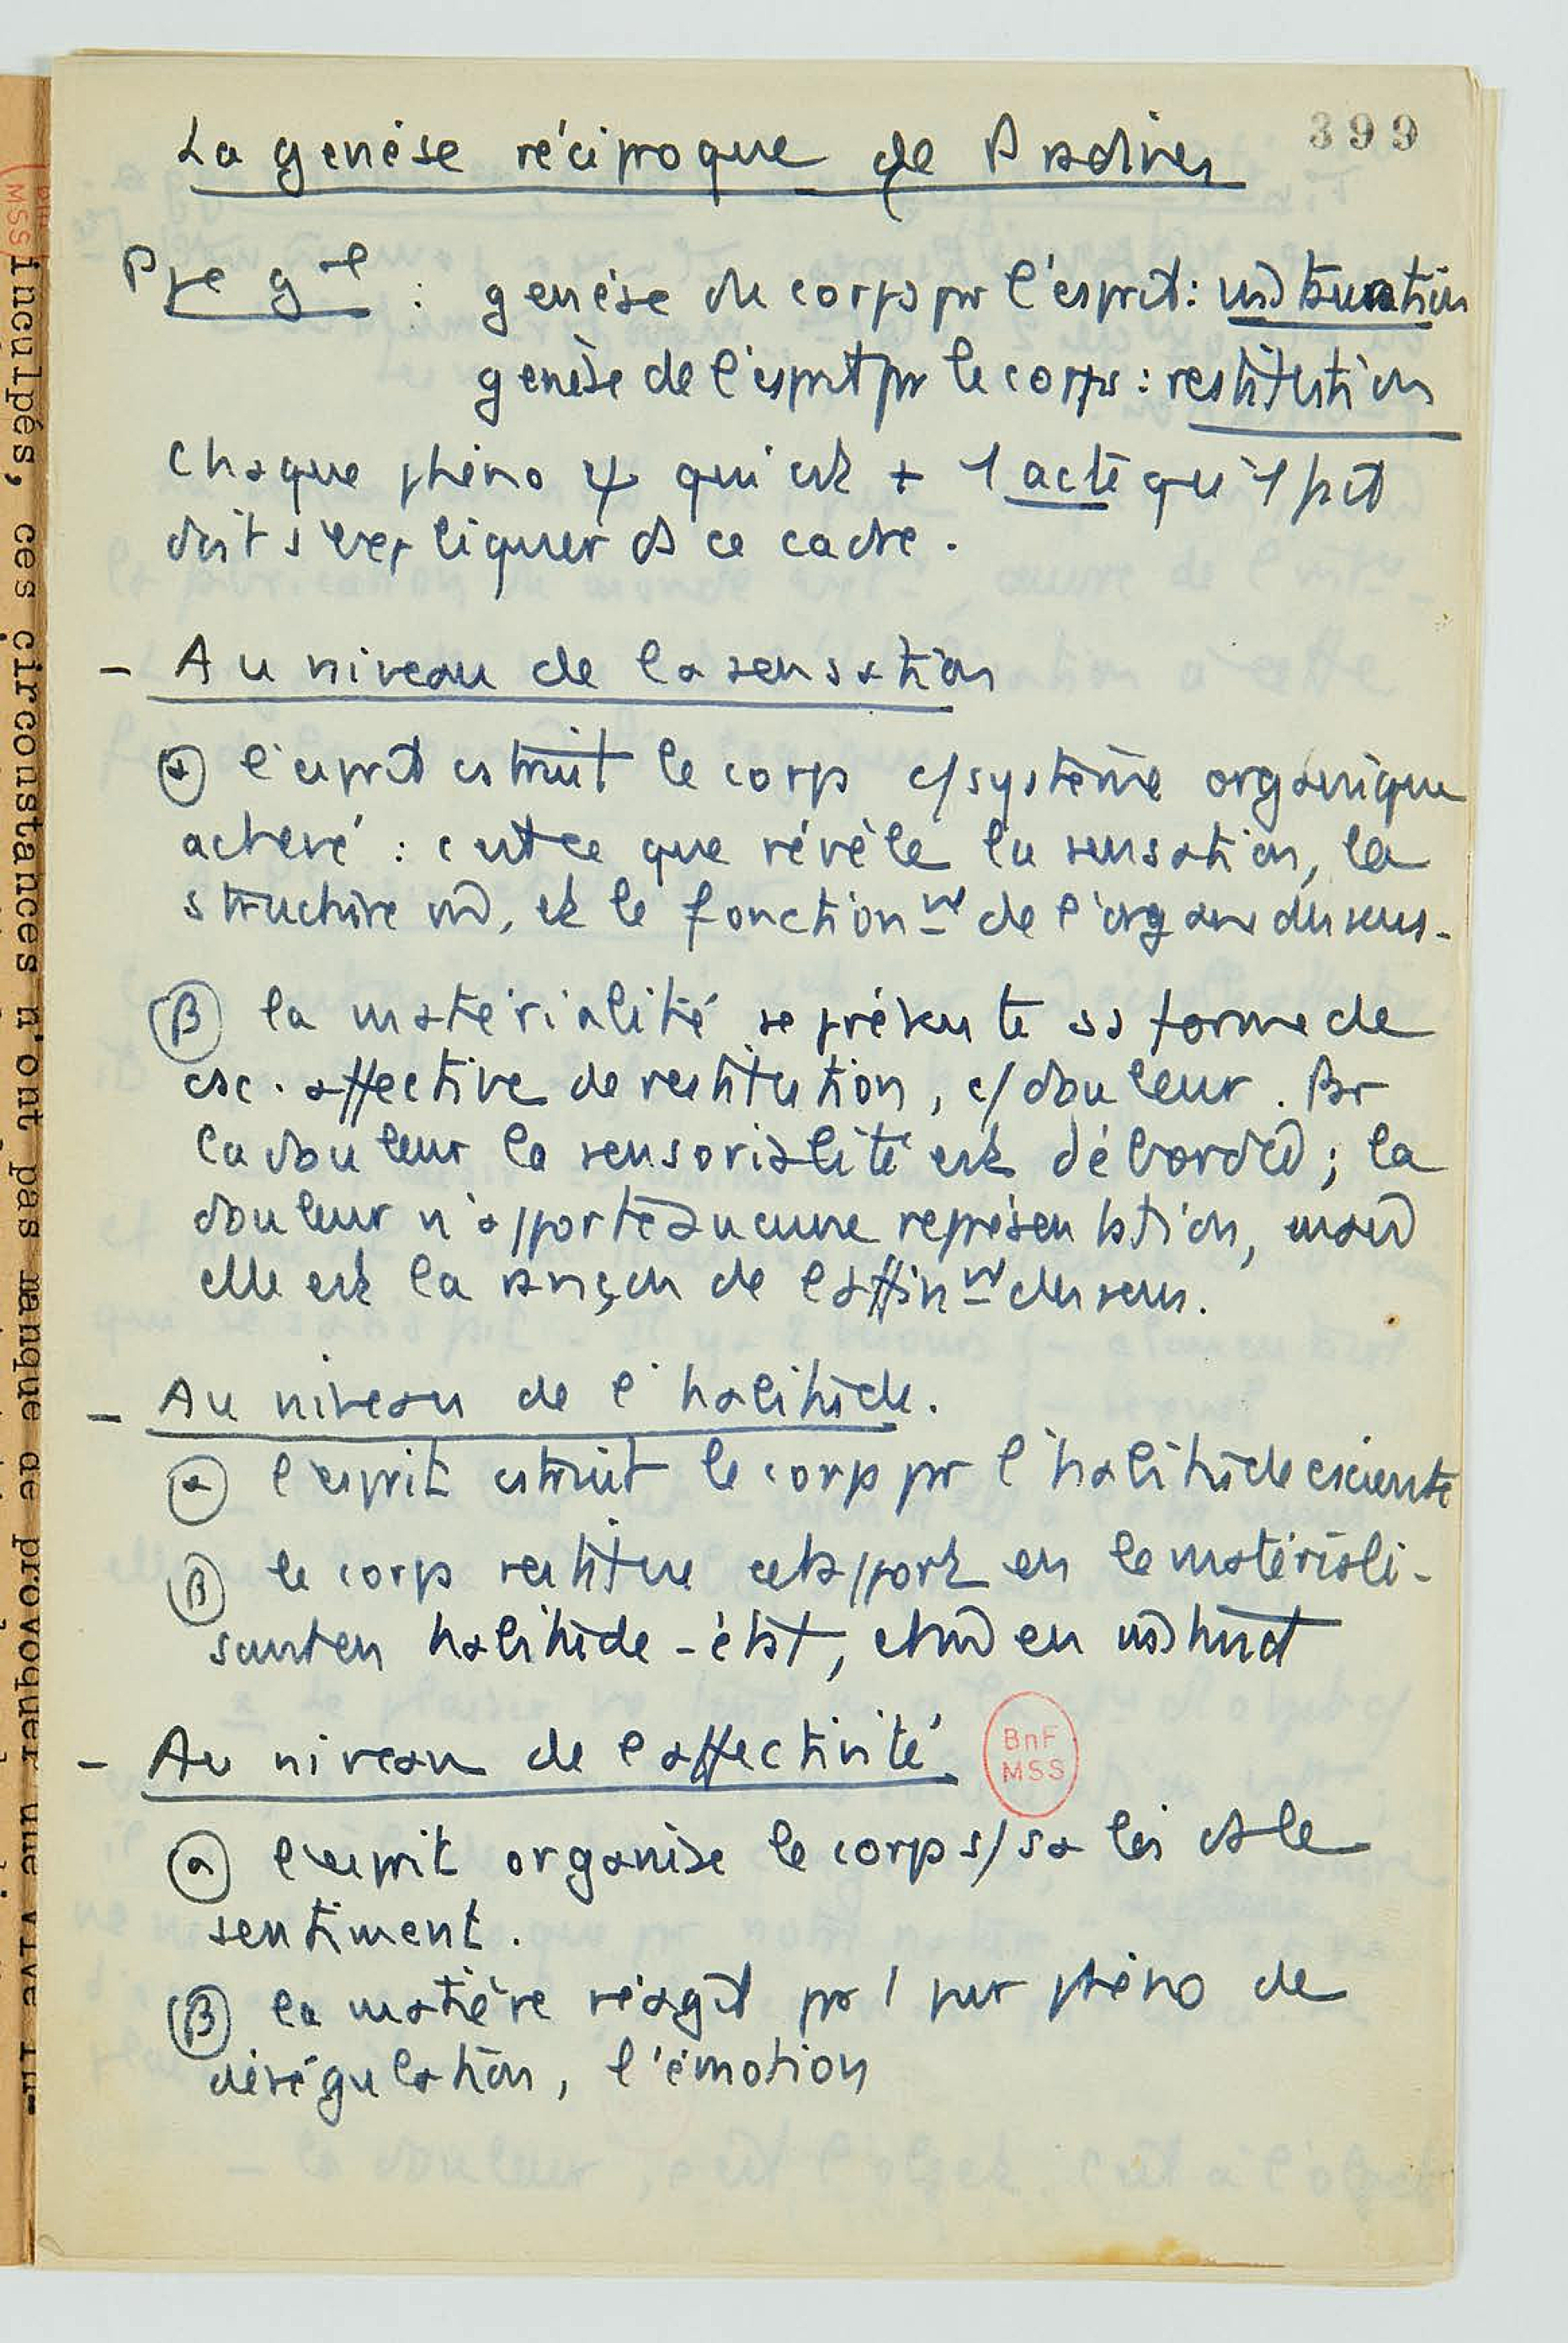 399
La genèse réciproque de Pradines
Ppe gal : genèse du corps pr l'esprit : instauration
genèse de l'esprit pr le corps : restitution
Chaque phéno ψ qui est + 1 acte qu'1 fait
doit s'expliquer ds ce cadre.
- Au niveau de la sensation
α l'esprit cstruit le corps c/ système organique
achevé : c'est ce que révèle la sensation, la
structure     , et le fonctionnt de l'organe du sens.
β la matérialité se présente ss forme de
csc. affective de restitution, c/ douleur. Pr
la douleur la sensorialité est débordée ; la
douleur n'apporte aucune représentation, mais
elle est la rançon de l'affint du sens.
- Au niveau de l'habitude.
α l'esprit cstruit le corps pr l'habitude csciente
β le corps restitue cet apport en le matériali-
sant en habitude-état,      en instinct
- Au niveau de l'affectivité
BnF
MSS
α l'esprit organise le corps s/ sa loi ds le
sentiment.
β la matière réagit pr 1 pur phéno de
dérégulation, l'émotion
MSS
inculpés, ces circonstances n'ont pas manqué de provoquer une vive